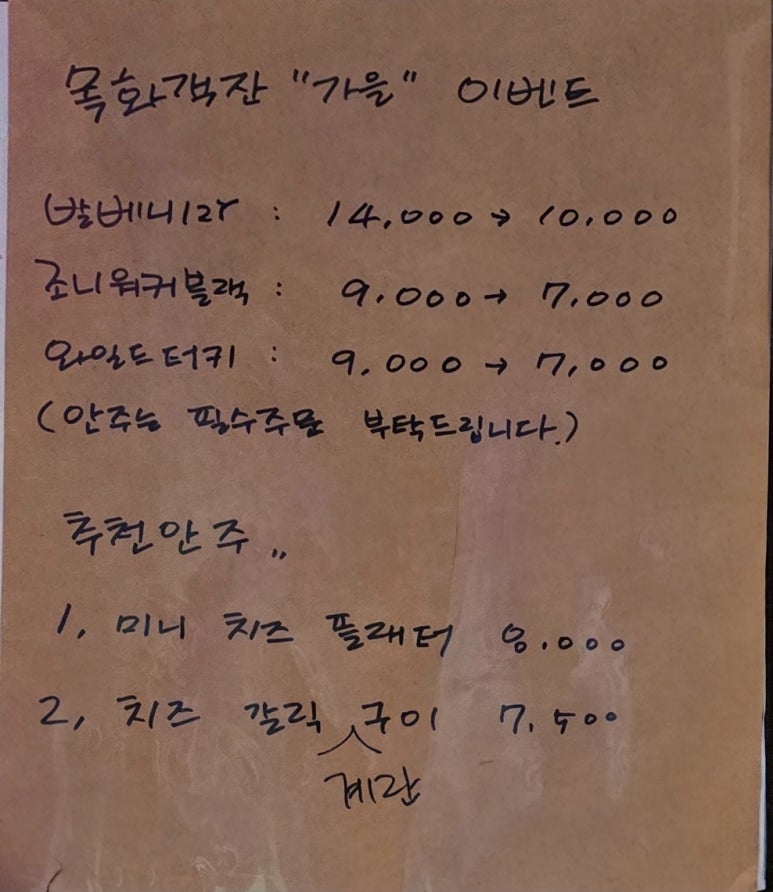 목화객잔 "가을" 이벤트
발베니12Y : 14,000 → 10,000
조니워커블랙 : 9,000 → 7,000
와일드터키 : 9,000 → 7,000
(안주는 필수주문 부탁드립니다.)
추천안주 〃
1, 미니 치즈 플래터 8,000
2, 치즈 갈릭 구이 7,500
계란